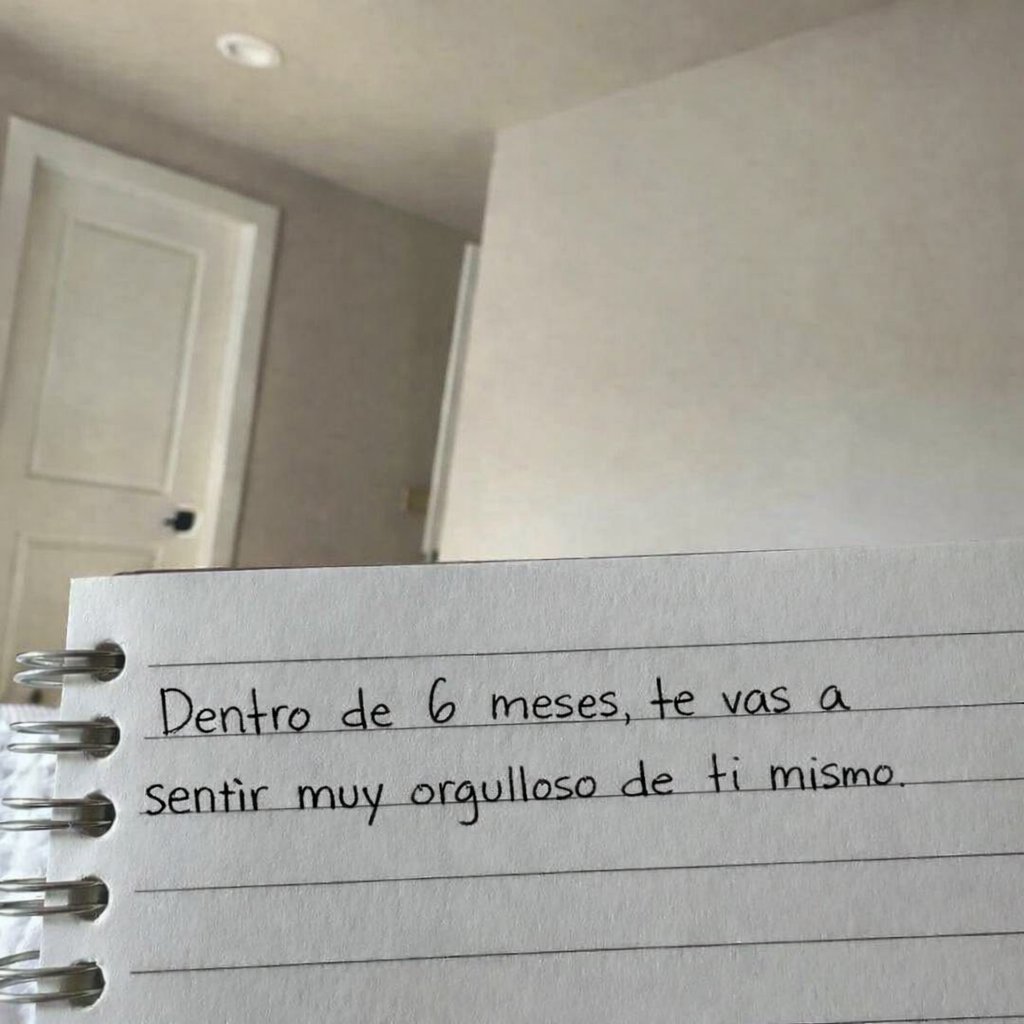 Dentro de 6 meses, te vas a
sentir muy orgulloso de ti mismo.